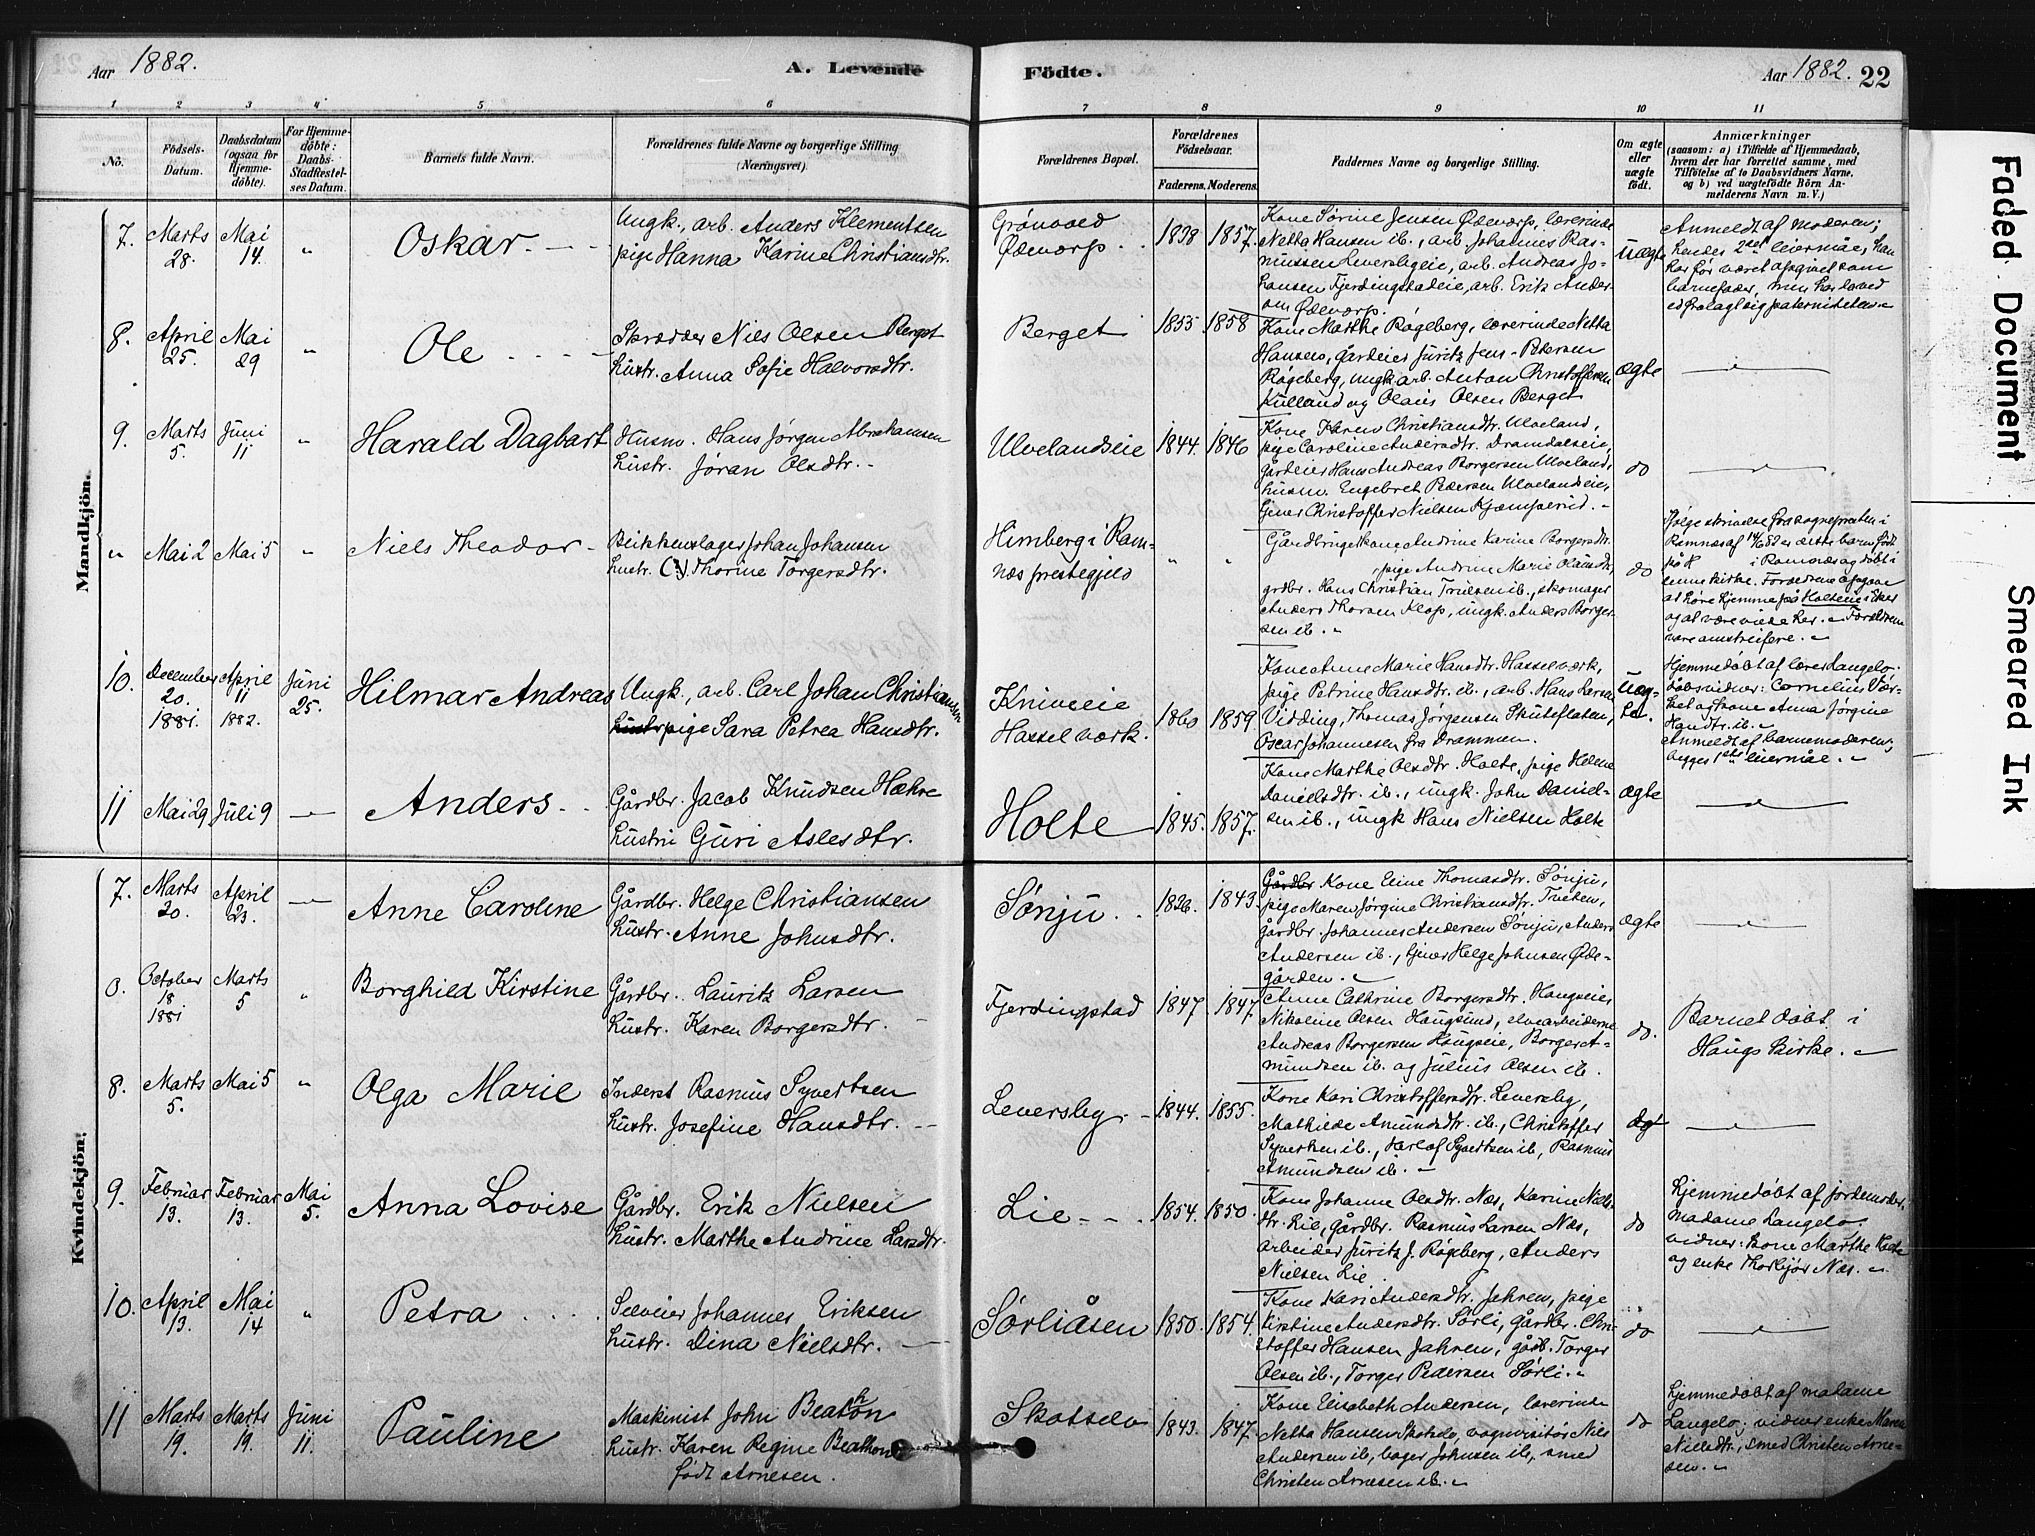 Aar 1882.
A. Levende
Födte.
Aar 1882. 22
1 2 3 4 5 6 7 8 9 10 11
No.
Födsels-Datum.
Daabsdatum (ogsaa for Hjemmedöbte).
For Hjemmedöbte: Daabs-Stadfæstelses Datum.
Barnets fulde Navn.
Forældrenes fulde Navne og borgerlige Stilling (Næringsvei).
Forældrenes Bopæl.
Forældrenes Födselsaar.
Faderens. Moderens.
Faddernes Navne og borgerlige Stilling.
Om ægte eller uægte födt.
Anmærkninger
(saasom: a) i Tilfælde af Hjemmedaab,
hvem der har forrettet samme, med
Tilföielse af to Daabsvidners Navne,
og b) ved uægtefödte Börn Anmelderens Navn m. V.)
Mandkjön.
7. Marts 28. Mai 14. " Oskar.
Ungk., arb. Anders Klementsen
pige Hanna Karine Christiansdtr.
Grønvold
Ødevorp
1838 1857.
Kone Sørine Jensen Ødevorp, lærerinde
Netta Hansen ib., arb. Johannes Ras-
mussen Leversbyeie, arb. Andreas Jo-
hansen Fjerdingstadeie, arb. Erik Anders-
sen Ødevorp.
uægte
Anmeldt af moderen;
hendes 2det leiermåe, han
har før været opgivet som
barnefader, men har ved
ed fralagt sig paterniteten.
8. April 25. Mai 29 " Ole
Skrædder Niels Olsen Berget
hustr. Anna Sofie Halvorsdtr.
Berget
1855 1858
Kone Marthe Røgeberg, lærerinde Netta
Hansen, gårdeier Juritz Jens-Petersen
Røgeberg, ungk. arb. Anton Christoffersen
Kulland og Olaus Olsen Berget
ægte
9. Marts 5. Juni 11 " Harald Dagbart
Husm. Hans Jørgen Abrahamsen
hustr. Jøran Olsdtr.
Ulvelandseie
1844. 1846
Kone Karen Christiansdtr. Ulveland,
pige Caroline Andersdtr. Dramdalseie,
gårdeier Hans Andreas Borgersen Ulveland,
husm. Engebret Pedersen Ulvelandseie,
tjener Christoffer Nielsen Kjæmperud.
do
" Mai 2 Mai 5 " Niels Theodor
Blikkenslager Johan Johansen
hustr. (?) Thorine Torgersdtr.
Himberg i Ram-
næs præstegjeld
" "
Gårdbrugerkone Andrine Karine Borgersdtr.
pige Andrine Marie Olausdtr,
grdbr. Hans Christian Truelsen ib., skomager
Anders Thorsen Klop, ungk. Anders Borger-
sen ib.
do
Ifølge skrivelse fra sognepresten i
Ramnæs af 14/6 82 er dette barn født
på H i Ramnæs og døbt i
denne kirke. Forældrene opgave
at høre hjemme på Holteeie i Eker
og at være viede her. Forældrene
vare omstreifere.
10. December 20. 1881. April 11 1882. Juni 25. Hilmar Andreas
Ungk., arb. Carl Johan Christiansen
pige Sara Petrea Hansdtr.
Kniveeie
Hasselværk.
1860 1859
Kone Anne Marie Hansdtr. Hasselværk,
pige Petrine Hansdtr. ib., arb. Hans Larsen
Vidding, Thomas Jørgensen Skuteflaten,
Oscar Johannesen fra Drammen.
uæg-
te.
Hjemmedøbt af lærer Langelo.
Døbsvidner: Cornelius Vær-
ket og kone Anna Jørgine
Hansdtr. ib.
Anmeldt af barnemoderen;
begges 1ste leiermåe.
11 Mai 29 Juli 9 Anders
Gårdbr. Jacob Knudsen Hæhre
hustru Guri Aslesdtr.
Holte
1845. 1857.
Kone Marthe Olsdtr. Holte, pige Helene
Danielsdtr. ib., ungk. John Daniel-
sen ib., ungk Hans Nielsen Holte
ægte
Kvindekjön.
7. Marts 20. April 23. Anne Caroline
Gårdbr. Helge Christiansen
hustr. Anne Johnsdtr.
Sønju
1826. 1843.
Gårdbr Kone Eline Thomasdtr. Sønju,
pige Maren Jørgine Christiansdtr. Tveten,
gårdbr. Johannes Andersen Sønju, Anders
Andersen ib., tjener Helge Johnsen Øde-
gården.
ægte
0. October 18 1881 Marts 5 " Borghild Kirstine
Gårdbr. Lauritz Larsen
hustr. Karen Borgersdtr.
Fjerdingstad
1847 1847
Anne Cathrine Borgersdtr. Haugseie
Nikoline Olsen Haugsund, elvearbeiderne
Andreas Borgersen Haugseie, Borger A-
mundsen ib. og Julius Olsen ib.
do.
Barnet døbt i
Haugs kirke.
8. Marts 5. Mai 5 " Olga Marie
Inderst Rasmus Syvertsen
hustr. Josefine Hansdtr.
Leversby
1844. 1855.
Kone Kari Christoffersdtr. Leversby,
Mathilde Amundsdtr. ib., Christoffer
Syvertsen ib., Herlof Syvertsen ib, Rasmus
Amundsen ib.
Ægt
9. Februar 13. Februar 13. Mai 5. Anna Lovise
Gårdbr. Erik Nielsen
hustr. Marthe Andrine Larsdtr.
Lie
1854. 1850.
Kone Johanne Olsdtr. Næs, Karine Niels-
dtr. Lie, gårdbr. Rasmus Larsen Næs,
arbeider Juritz J. Røgeberg, Anders
Nielsen Lie.
do
hjemmedøbt af jordemoder
madame Langelo.
vidner: kone Marthe Holte
og enke Thorbjør Næs.
10. April 13. Mai 14 " Petra
Selveier Johannes Eriksen
hustr. Dina Nielsdtr.
Sørliåsen
1850. 1854.
Kone Kari Andersdtr. Jahren, pige
Kirstine Andersdtr. Sørli, gårdbr. Chri-
stoffer Hansen Jahren, gårdb. Torger
Olsen ib., Torger Pedersen Sørli.
do
11 Marts 19. Marts 19. Juni 11. Pauline
Maskinist John Beathon
hustr. Karen Regine Beathon
født Arnesen.
Skotselv
1843. 1847.
Kone Elisabeth Andersen, lærerinde
Netta Hansen Skotselv, vognvisitør Niels
Andersen ib, bager Johnsen ib., smed
Christen Arnesen ib.
do
hjemmedøbt af madame
Langelo; vidner enke Maren
Nielsdtr., smed Christen Arne-
sen.
Faded Document
Smeared Ink